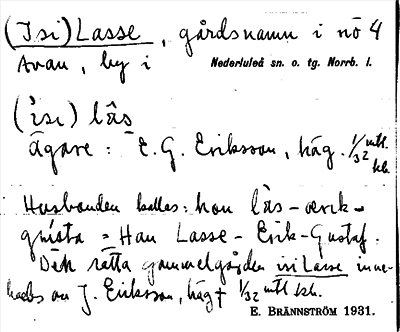 (Isi) Lasse, gårdsnamn i nö 4
Avan, by i Nederluleå sn. o. tg. Norrb. l.
(ìsi) lås
Ägare: E. G. Eriksson, häg. 1/32 mtl
skb.
Husbonden kallas: han lås-ærik-
gústa = Han Lasse-Erik-Gustaf.
Den rätta gammelgården isi Lasse inne-
hades av J. Eriksson, häg + 1/32 mtl skb.
E. BRÄNNSTRÖM 1931.